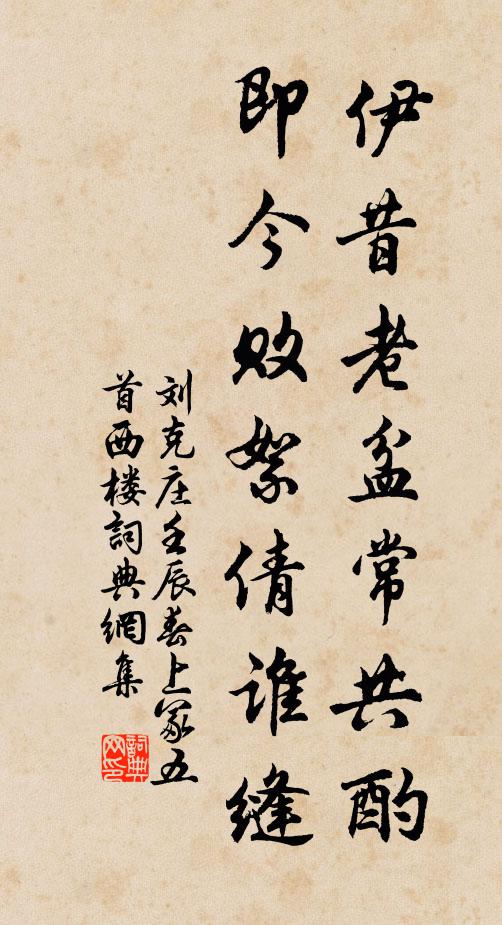 伊昔老盆常共酌
即今败絮倩谁缝
刘克庄壬辰春上冢五
首西楼詞典網集
詞典
网印